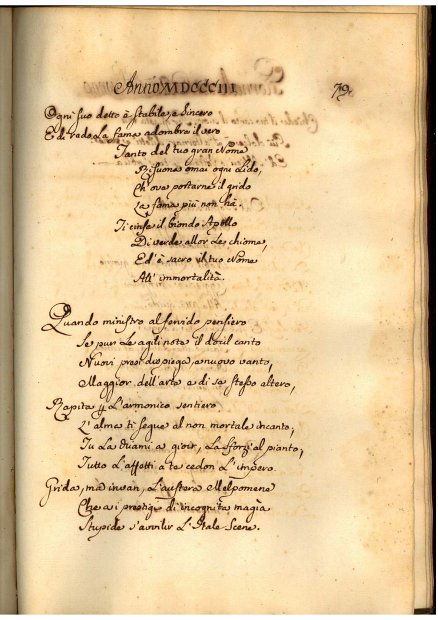 Anno MDCCCIII
79.
Ogni suo detto è stabile, e sincero
E di rado La fama adombra il vero
Tanto del tuo gran Nome
Risuona omai ogni Lido,
Ch'ove portarne il grido
La fama più non hà.
Ti cinse il biondo Apollo
Di verde allor Le chiome,
Ed è sacro il tuo Nome
All' immortalità.
Quando ministro al fervido pensiero
Se pur Le agili note il docil canto
Nuovi presi dispiega, a nuovo vanto,
Maggior dell'arte a di se stesso altero,
Rapita L'armonico sentiero
L'alma ti segue al non mortale incanto;
Tu La a gioir, La sforzi al pianto,
Tutto L'affetti a te cedon L'impero.
Grida, ma invan, L'austera Melpomene
Che a i prestigi di incognita magìa
Stupide s'avvilir L'Itale Scene.